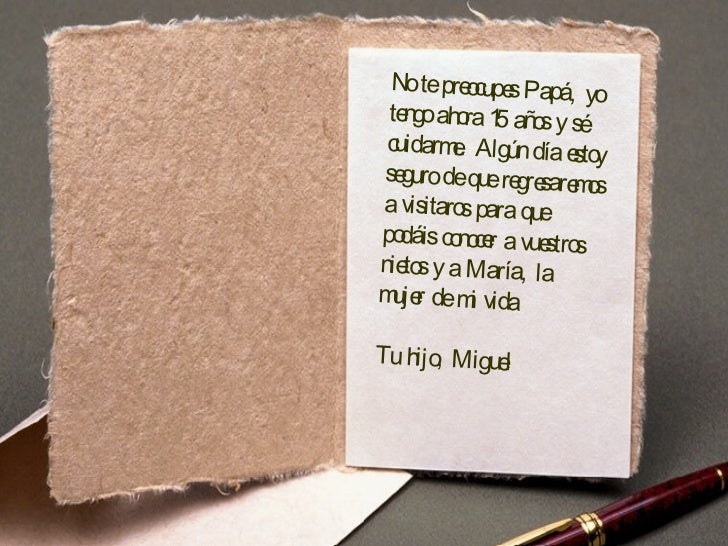 No te preocupes Papá, yo
tengo ahora 15 años y sé
cuidarme Algún día estoy
seguro de que regresaremos
a visitaros para que
podáis conocer a vuestros
nietos y a María, la
mujer de mi vida

Tu hijo, Miguel